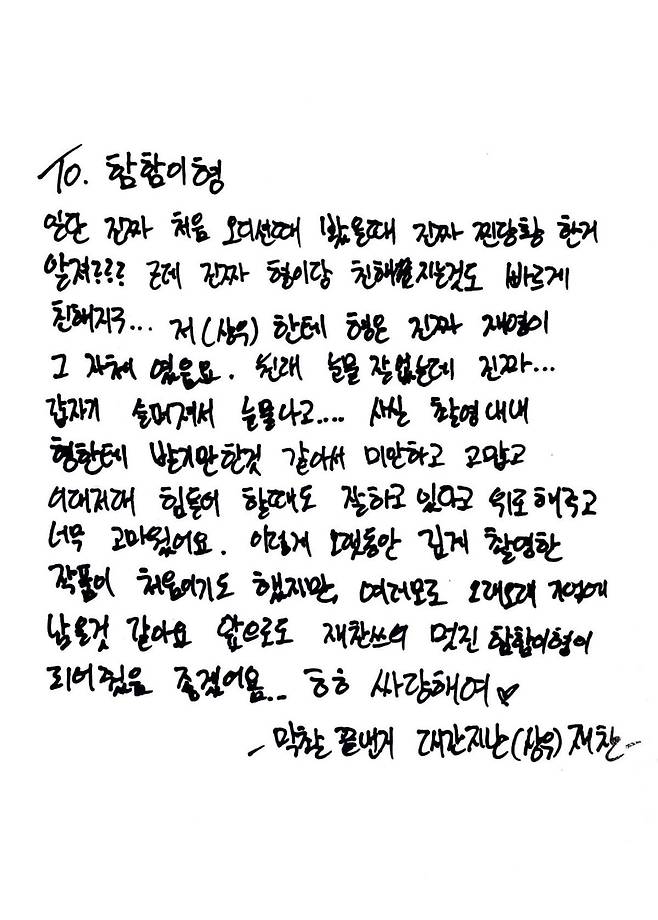 TO. 함함이형
일단 진짜 처음 오디션때 봤을때 진짜 찐당황 한거
알져??? 근데 진짜 형이당 친해지는것도 빠르게
친해지구... 저(상우)한테 형은 진짜 재영이
그 자체 였음요. 원래 눈물 잘없는데 진짜...
갑자기 슬퍼져서 눈물나고.... 사실 촬영내내
형한테 받기만한것 같아서 미안하고 고맙고
이래저래 힘들어 할때도 잘하고 있다고 위로해주고
너무 고마웠어요. 이렇게 오랫동안 길게 촬영한
작품이 처음이기도 했지만, 여러모로 오래오래 기억에
남을것 같아요 앞으로도 재찬쓰의 멋진 함함이형이
되어줬음 좋겠어욤.. ㅎㅎ 싸랑해여♡
- 막촬 끝낸지 대간지난(상우) 재찬...